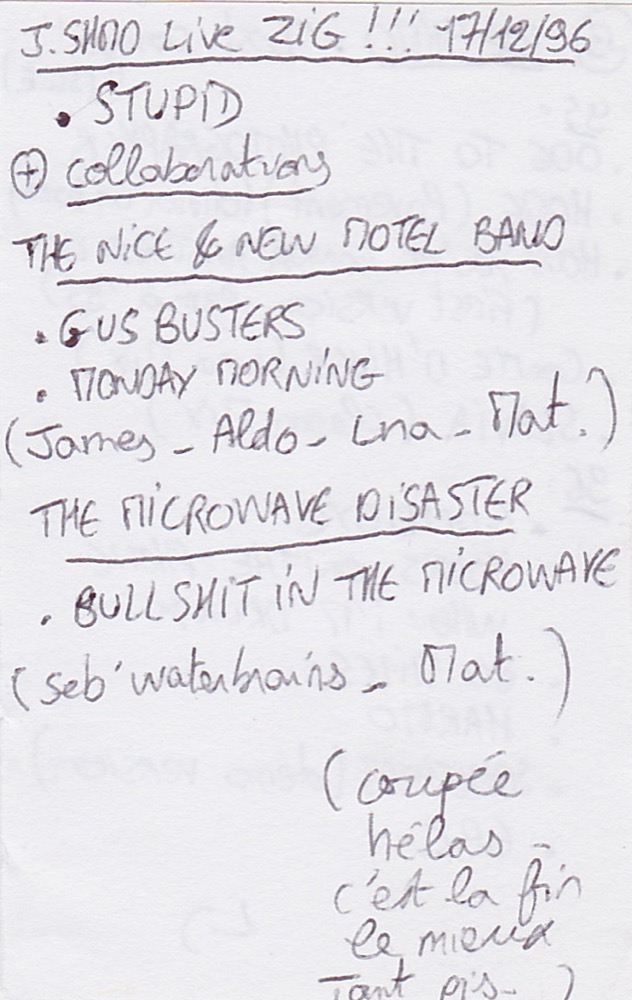 J. SHMO Live ZiG !!! 17/12/96
• STUPiD
⊕ collaborations
THE NiCE & NEW MOTEL BAND
• GUS BUSTERS
• MONDAY MORNiNG
(James - Aldo - Lna - Mat.)
THE MiCROWAVE DiSASTER
• BULLSHiT iN THE MiCROWAVE
(seb' waterbrains - Mat.)
(coupée
hélas -
c'est la fin
le mieux
Tant pis - )